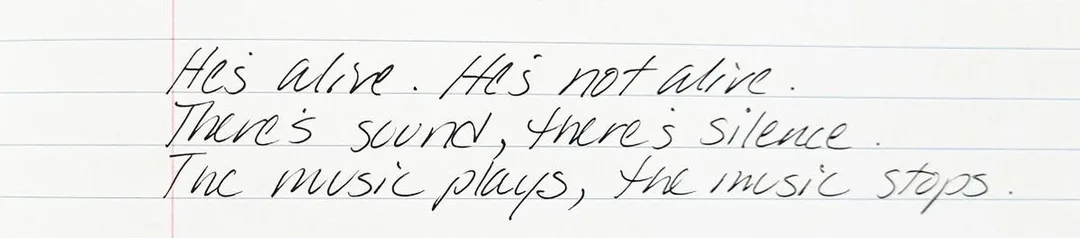 He's alive. He's not alive.
There's sound, there's silence.
The music plays, the music stops.